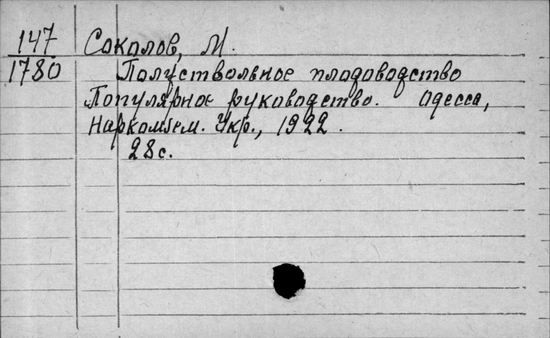 147 Соколов, М.
1780 Полуствольное плодоводство
Популярное руководство. Одесса,
Наркомзем. Укр., 1922.
28с.